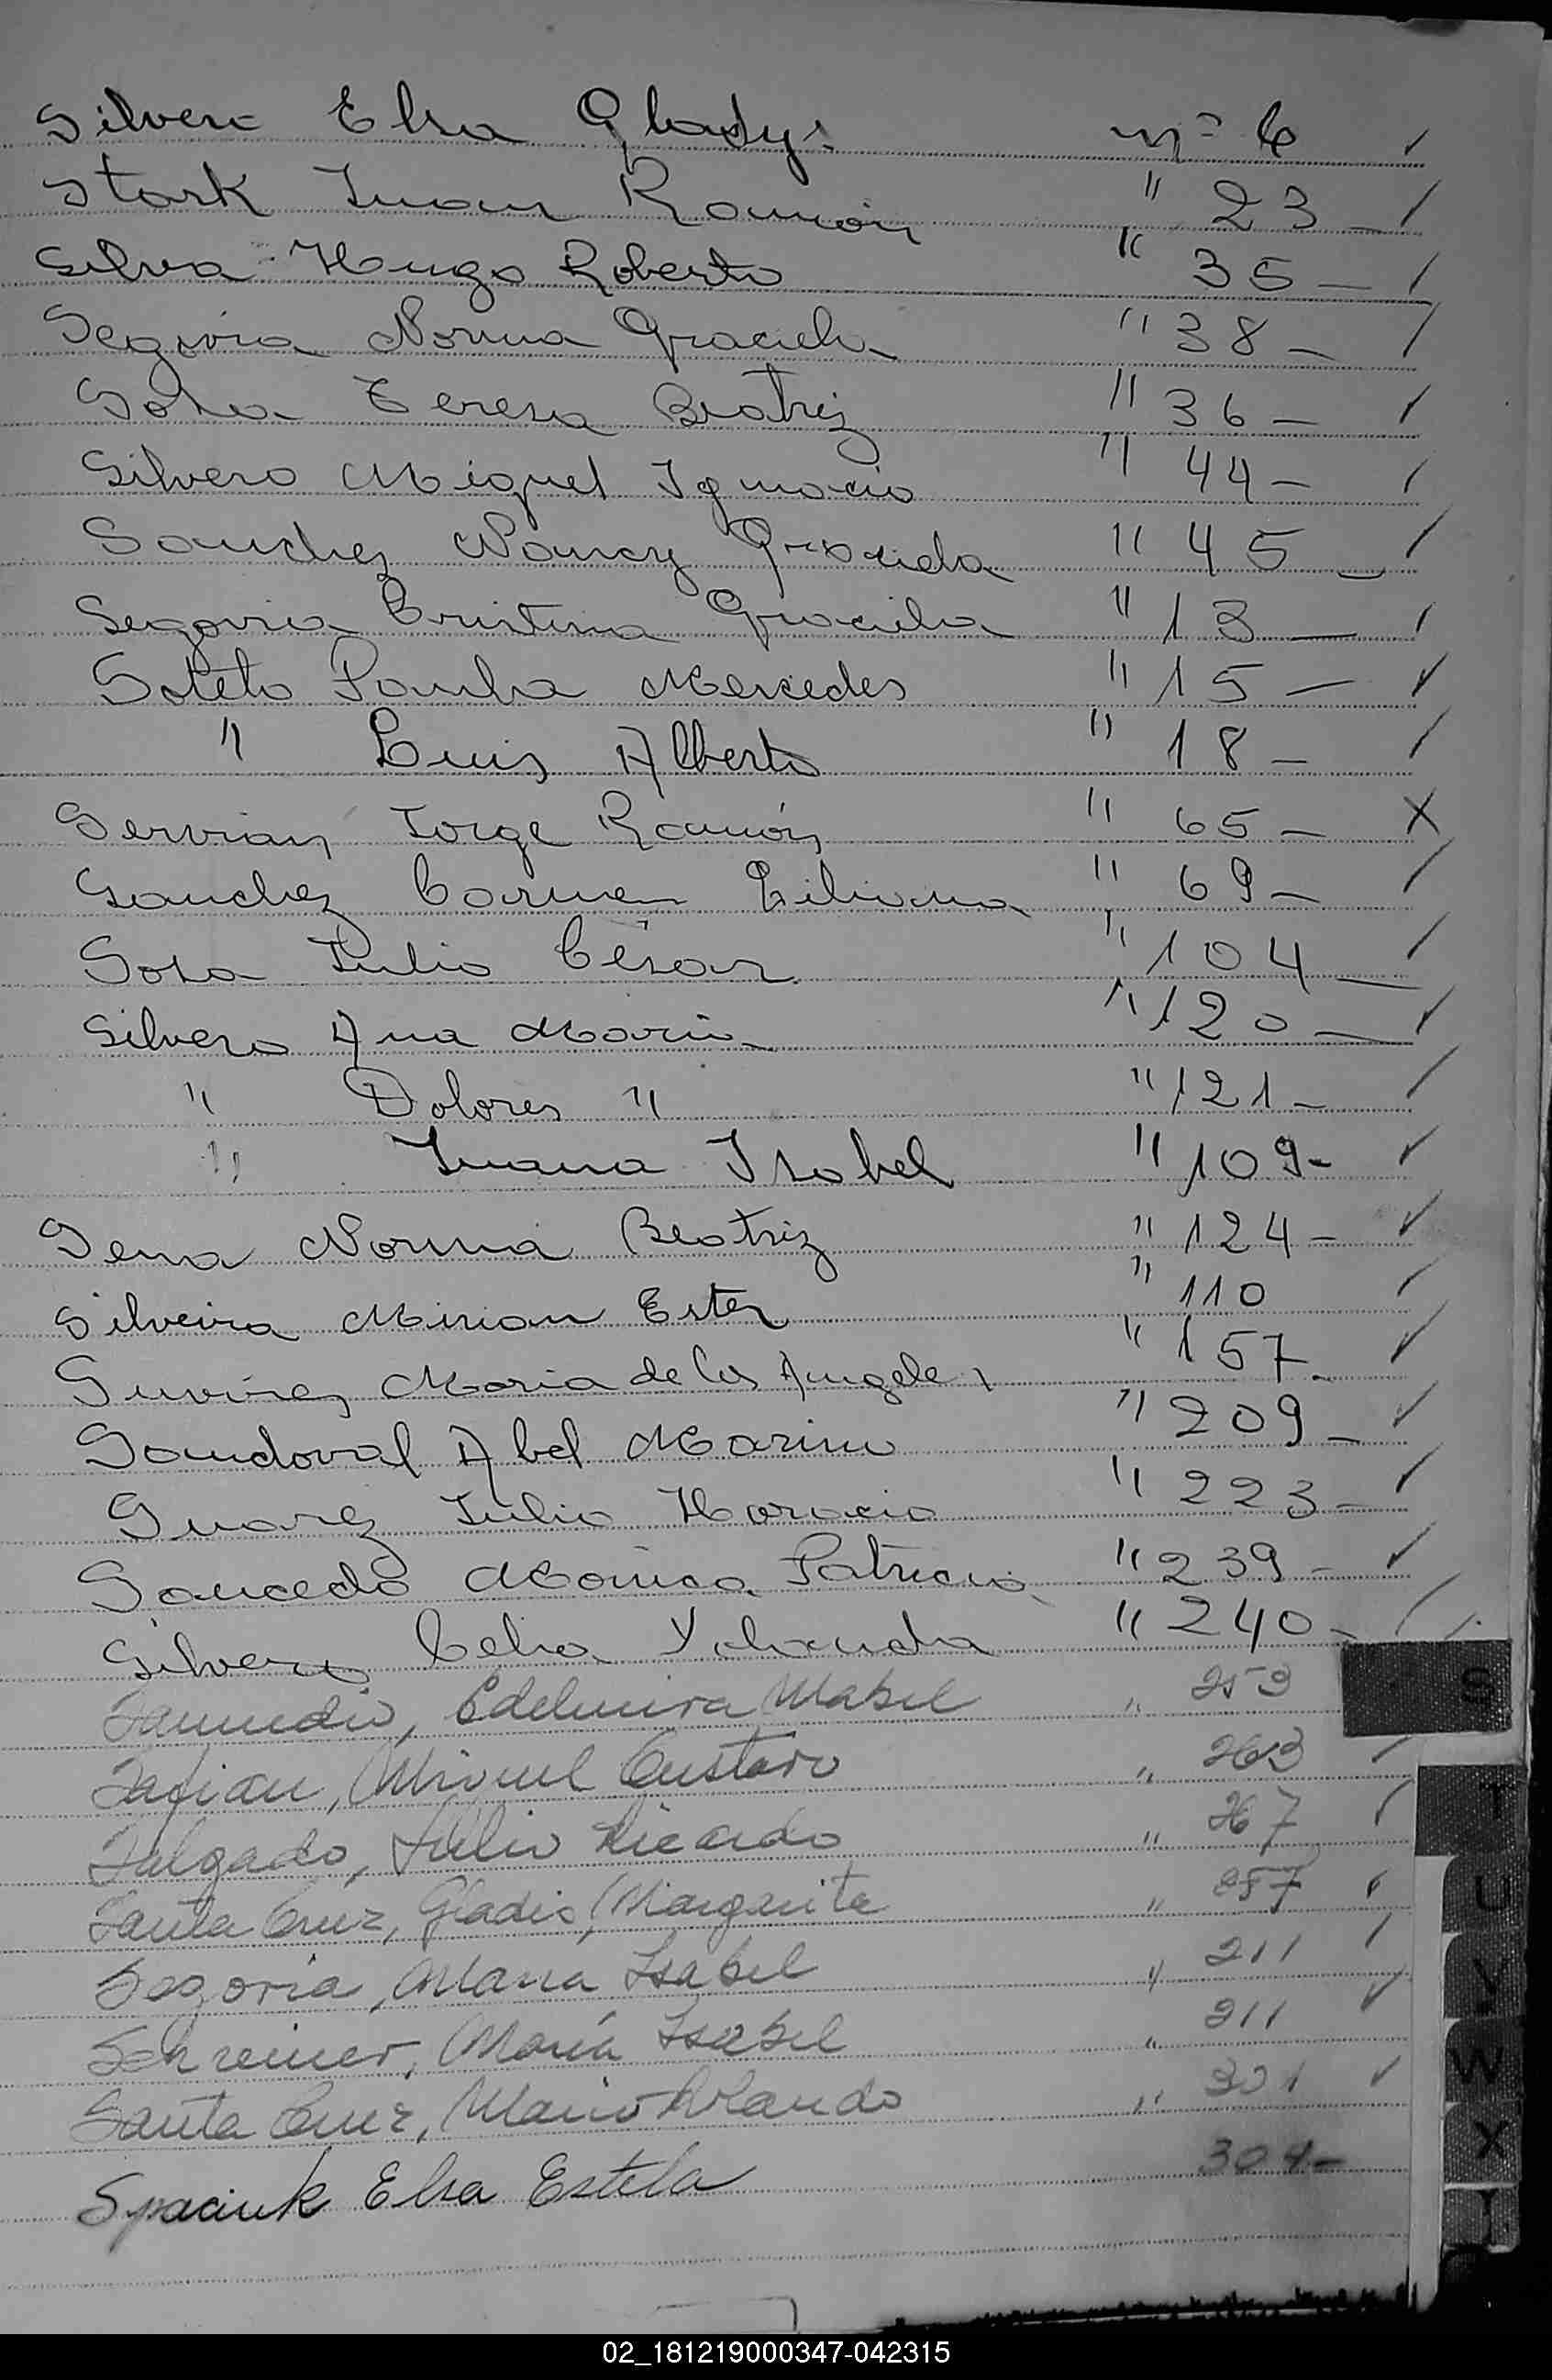 Silvero Elsa Gladys nº 6
Stark Juan Ramón " 23 -
Silva Hugo Roberto " 35 -
Segovia Norma Graciela " 38 -
Sosa Teresa Beatriz " 36 -
Silvero Miguel Ignacio " 44 -
Sanchez Nancy Graciela " 45 -
Segovia Cristina Graciela " 13 -
Sotelo Pamela Mercedes " 15 -
" Luis Alberto " 18 -
Servian Jorge Ramón " 65 - X
Sanchez Carmen Liliana " 69 -
Sosa Julio César " 104 -
Silvero Ana Maria " 120 -
" Dolores " " 121 -
" Juana Isabel " 109 -
Sena Norma Beatriz " 124 -
Silveira Mirian Ester " 110
Maria de los Angeles " 157 -
Sandoval Abel Marino " 209 -
Suarez Julio Horacio " 223 -
Saucedo Monica Patricia " 239 -
Silvero Celia Yolanda " 240 -
Edelmira Mabel " 253
S
Miguel Gustavo " 263
T
Salgado, Julio Ricardo " 267
Santa Cruz, Gladis Margarita " 257
U
Segovia, Maria Isabel " 211
V
Schreiner, María Isabel " 211
W
Santa Cruz, Mario Rolando " 301
X
Spaciuk Elsa Estela 304 -
Y
02_181219000347-042315